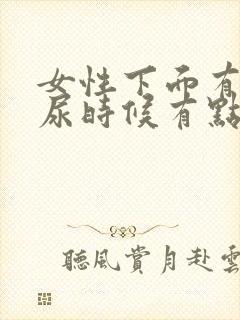 女性下面有
尿時候有點
聽風賞月赴雲